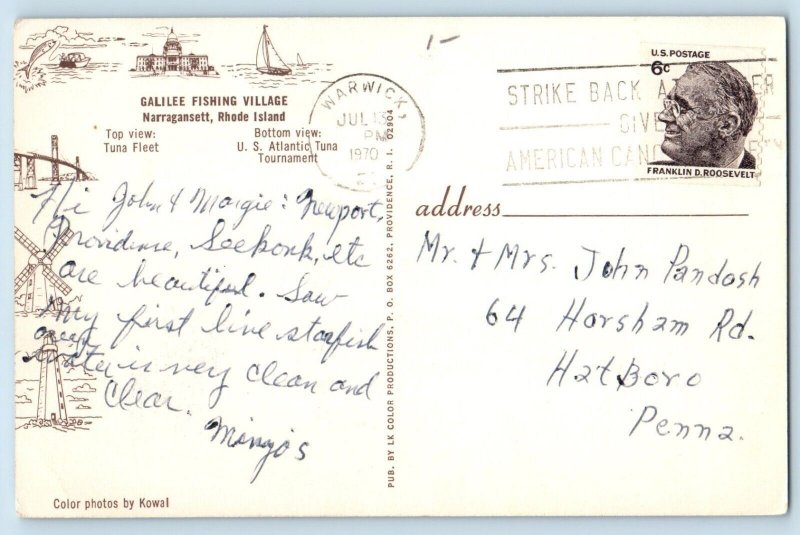 GALILEE FISHING VILLAGE
Narragansett, Rhode Island
Top view:
Tuna Fleet
Bottom view:
U. S. Atlantic Tuna
Tournament
WARWICK,
JUL
PM
1970
STRIKE BACK AT
GIVE
AMERICAN CANC
U.S. POSTAGE
6c
FRANKLIN D. ROOSEVELT
Hi John & Margie: Newport,
Providense, Seekonk, etc
are beautiful. Saw
my first live starfish
water is very clean and
clear.
address
Mr. + Mrs. John Pandosh
64 Horsham Rd.
HatBoro
Penna.
PUB. BY LK COLOR PRODUCTIONS, P. O. BOX 6262, PROVIDENCE, R. I. 02904
Color photos by Kowal